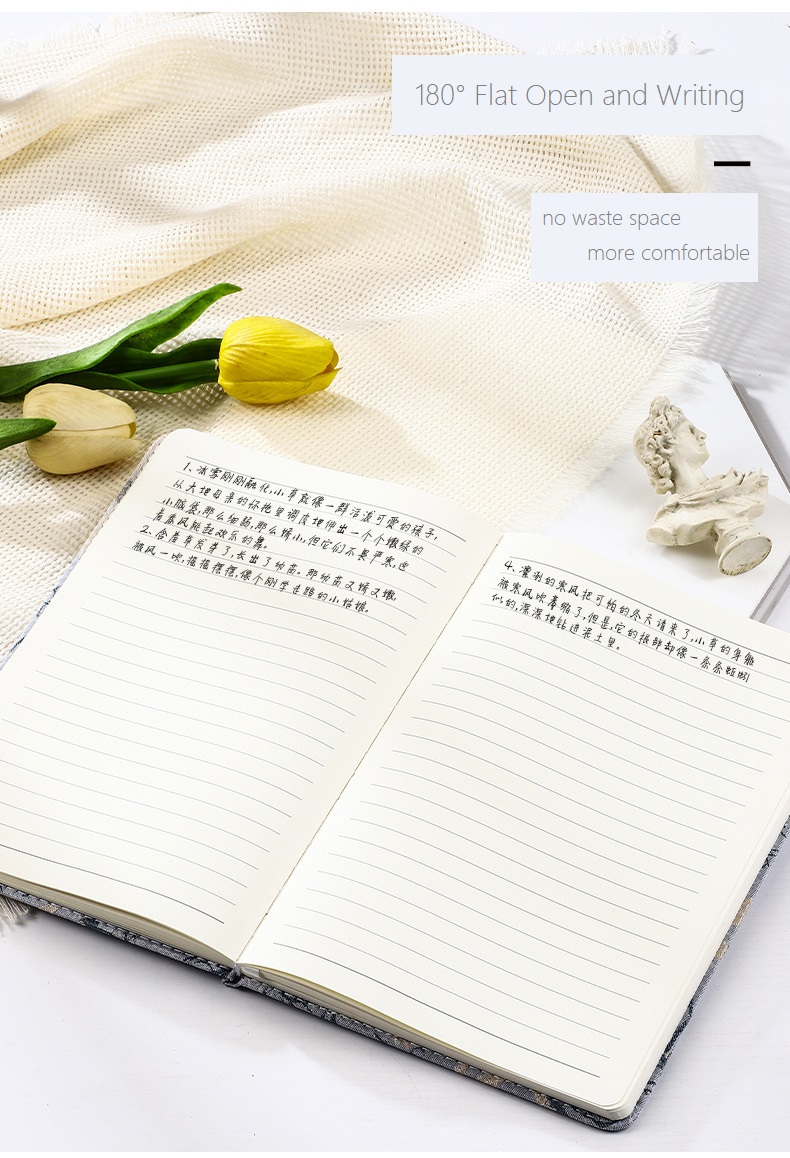 180° Flat Open and Writing
no waste space
more comfortable
1、冰雪刚刚融化,小草就像一群活泼可爱的孩子,
从大地母亲的怀抱里调皮地伸出一个个嫩绿的
小脑袋,那么细弱,那么矮小,但它们不畏严寒,迎
着春风跳起欢乐的舞。
2、含着草发芽了,长出了幼苗。那幼苗又矮又嫩,
被风一吹,摇摇摆摆,像个刚学走路的小姑娘。
4、凛冽的寒风把可怕的冬天请来了,小草的身躯
被寒风吹毒缩了,但是,它的根部却像一条条蚯蚓
似的,深深地钻进泥土里。